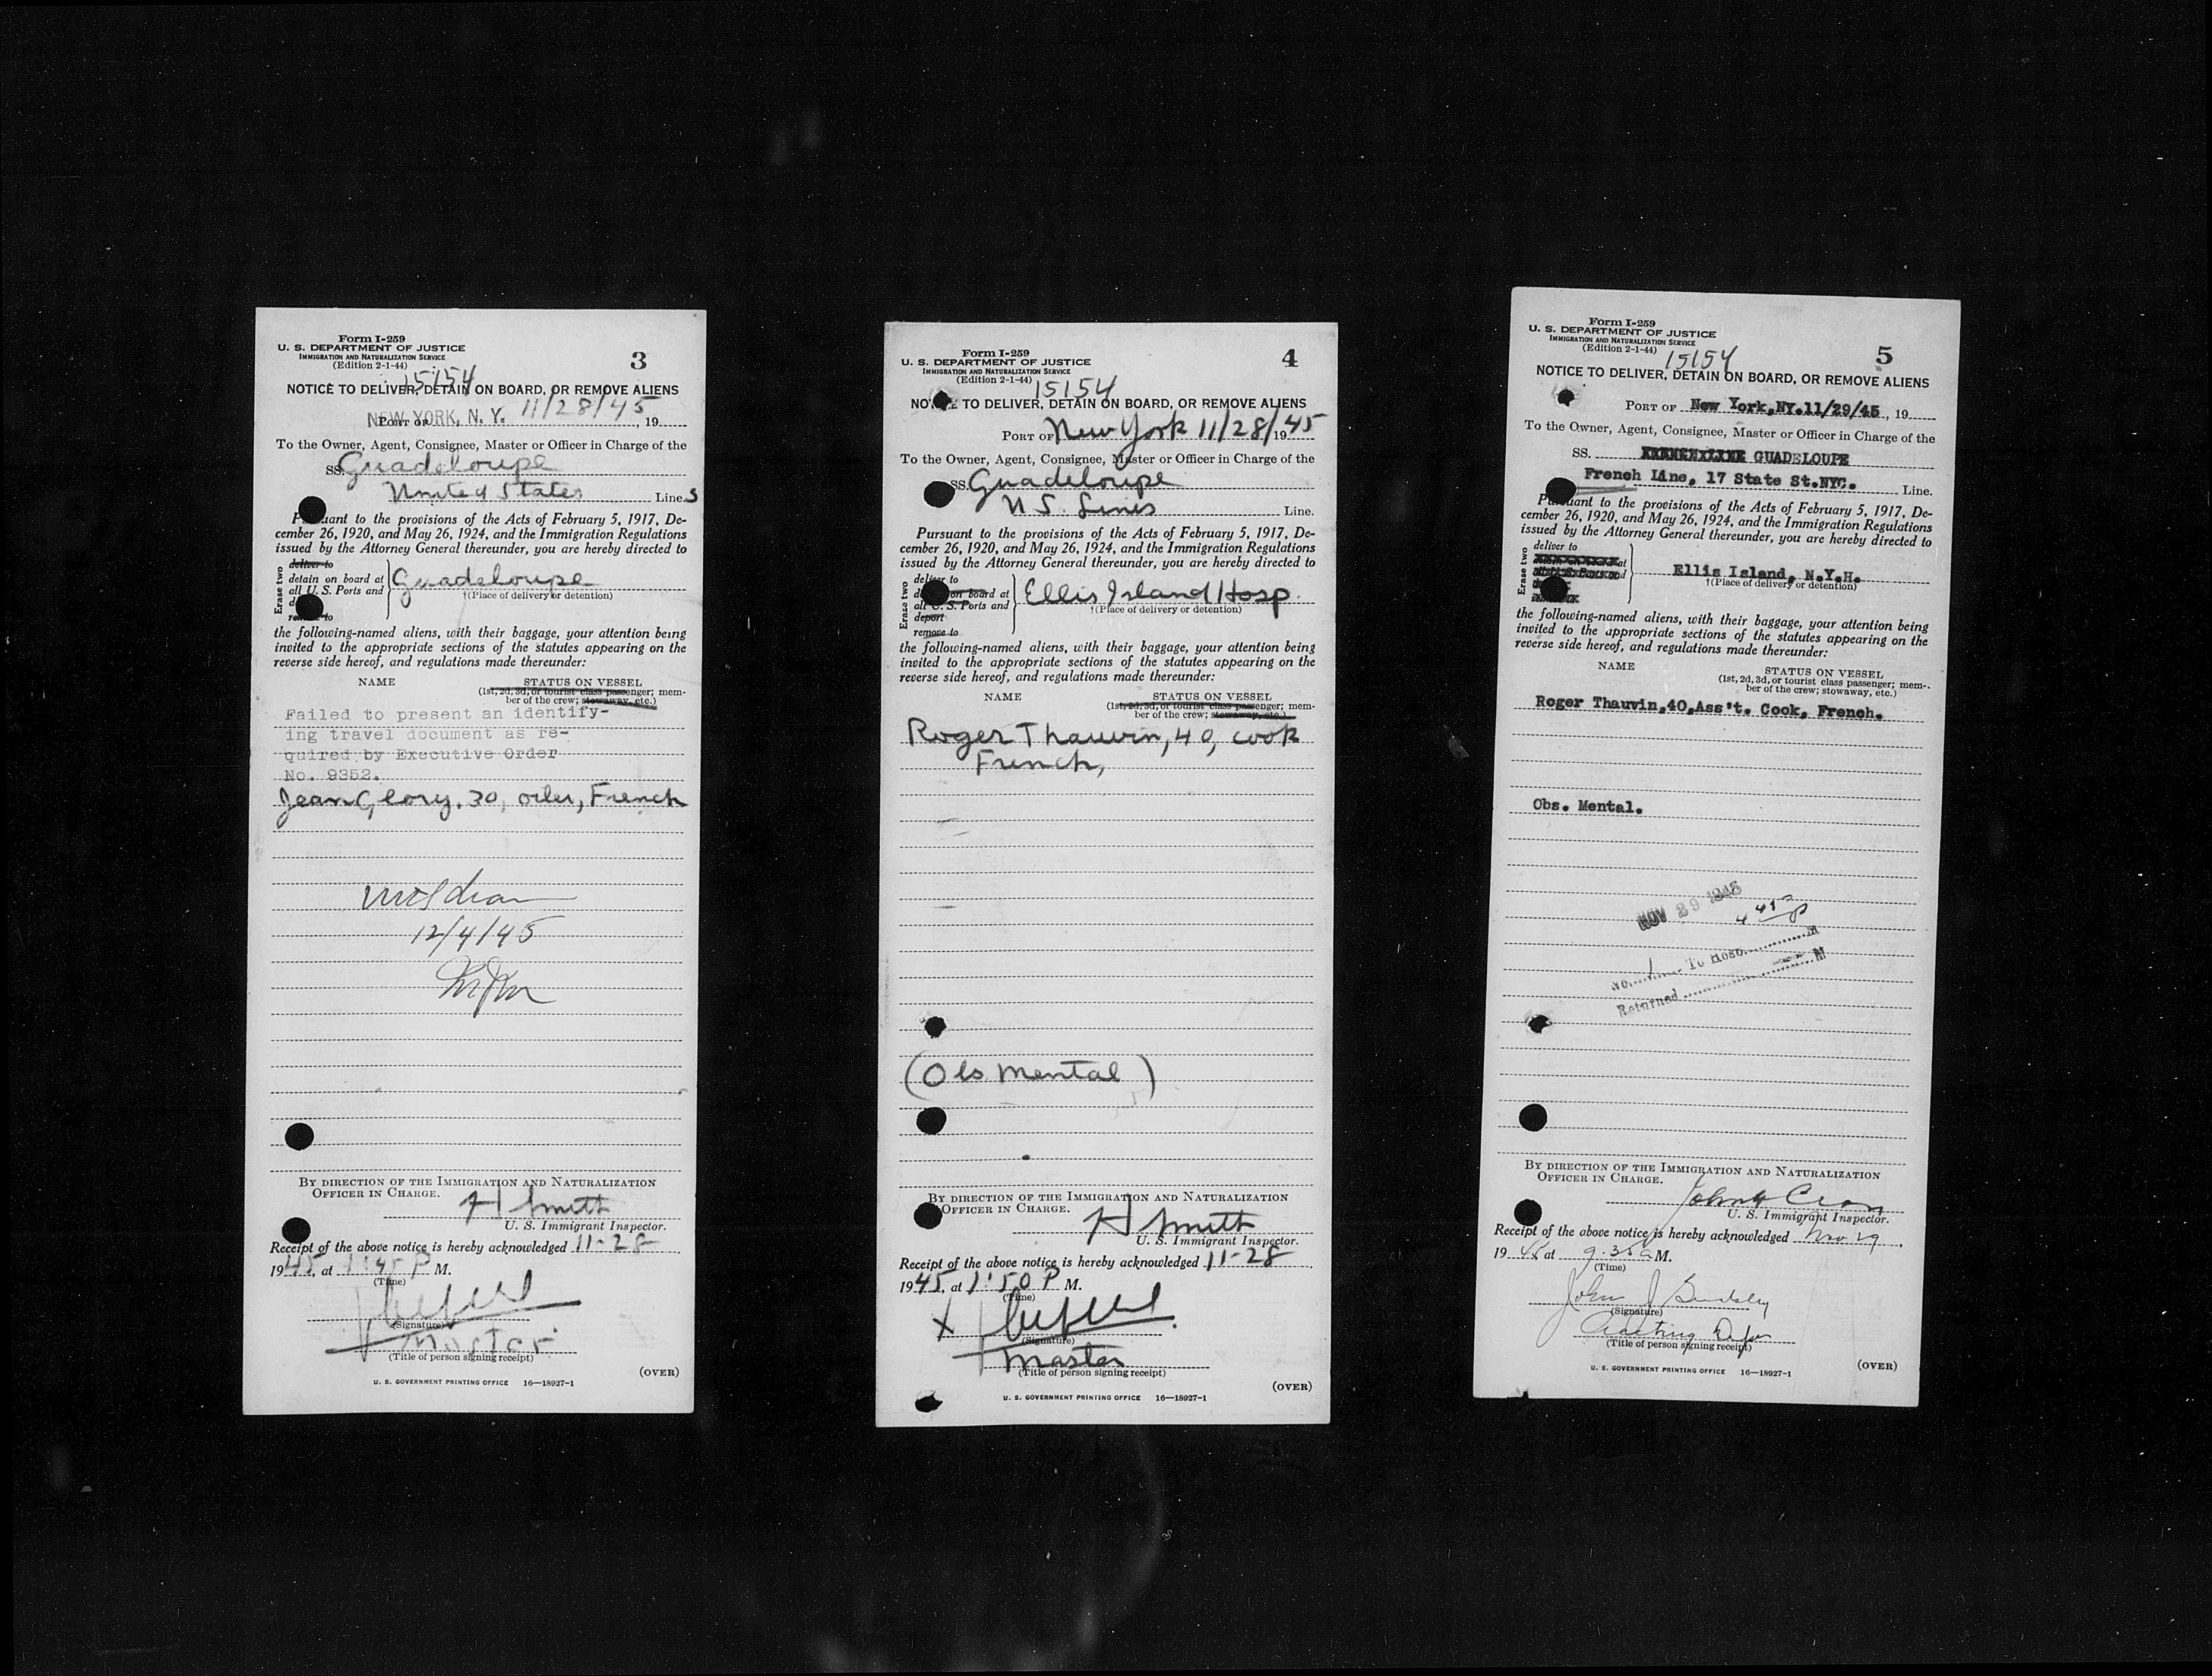 Form I-259
U. S. DEPARTMENT OF JUSTICE
IMMIGRATION AND NATURALIZATION SERVICE
(Edition 2-1-44)
3
15154
NOTICE TO DELIVER, DETAIN ON BOARD, OR REMOVE ALIENS
NEW YORK, N. Y. 11/28/45
PORT OF , 19
To the Owner, Agent, Consignee, Master or Officer in Charge of the
SS. Guadeloupe
United States Lines
Pursuant to the provisions of the Acts of February 5, 1917, De-
cember 26, 1920, and May 26, 1924, and the Immigration Regulations
issued by the Attorney General thereunder, you are hereby directed to
Erase two
deliver to
detain on board at
all U. S. Ports and
remove to
Guadeloupe
†(Place of delivery or detention)
the following-named aliens, with their baggage, your attention being
invited to the appropriate sections of the statutes appearing on the
reverse side hereof, and regulations made thereunder:
NAME STATUS ON VESSEL
(1st, 2d, 3d, or tourist class passenger; mem-
ber of the crew; stowaway, etc.)
Failed to present an identify-
ing travel document as re-
quired by Executive Order
No. 9352.
Jean Glory, 30, oiler, French
12/4/45
BY DIRECTION OF THE IMMIGRATION AND NATURALIZATION
OFFICER IN CHARGE.
H Smith
U. S. Immigrant Inspector.
Receipt of the above notice is hereby acknowledged 11-28
1945, at 1:45 P M.
(Time)
(Signature)
Master
(Title of person signing receipt)
(OVER)
U. S. GOVERNMENT PRINTING OFFICE 16—18927-1
Form I-259
U. S. DEPARTMENT OF JUSTICE
IMMIGRATION AND NATURALIZATION SERVICE
(Edition 2-1-44)
4
15154
NOTICE TO DELIVER, DETAIN ON BOARD, OR REMOVE ALIENS
PORT OF New York 11/28/1945
To the Owner, Agent, Consignee, Master or Officer in Charge of the
SS. Guadeloupe
U.S. Lines Line.
Pursuant to the provisions of the Acts of February 5, 1917, De-
cember 26, 1920, and May 26, 1924, and the Immigration Regulations
issued by the Attorney General thereunder, you are hereby directed to
Erase two
deliver to
on board at
all U. S. Ports and
deport
remove to
Ellis Island Hosp.
†(Place of delivery or detention)
the following-named aliens, with their baggage, your attention being
invited to the appropriate sections of the statutes appearing on the
reverse side hereof, and regulations made thereunder:
NAME STATUS ON VESSEL
(1st, 2d, 3d, or tourist class passenger; mem-
ber of the crew; stowaway, etc.)
Roger Thauvin, 40, cook
French,
(Obs Mental)
BY DIRECTION OF THE IMMIGRATION AND NATURALIZATION
OFFICER IN CHARGE.
H Smith
U. S. Immigrant Inspector.
Receipt of the above notice is hereby acknowledged 11-28
1945, at 1:50 P M.
(Time)
X
(Signature)
Master
(Title of person signing receipt)
(OVER)
U. S. GOVERNMENT PRINTING OFFICE 16—18927-1
Form I-259
U. S. DEPARTMENT OF JUSTICE
IMMIGRATION AND NATURALIZATION SERVICE
(Edition 2-1-44)
5
15154
NOTICE TO DELIVER, DETAIN ON BOARD, OR REMOVE ALIENS
PORT OF New York,NY.11/29/45, 19
To the Owner, Agent, Consignee, Master or Officer in Charge of the
SS. GUADELOUPE
French Line, 17 State St.NYC. Line.
Pursuant to the provisions of the Acts of February 5, 1917, De-
cember 26, 1920, and May 26, 1924, and the Immigration Regulations
issued by the Attorney General thereunder, you are hereby directed to
Erase two
deliver to
Ellis Island, N.Y.H.
†(Place of delivery or detention)
the following-named aliens, with their baggage, your attention being
invited to the appropriate sections of the statutes appearing on the
reverse side hereof, and regulations made thereunder:
NAME STATUS ON VESSEL
(1st, 2d, 3d, or tourist class passenger; mem-
ber of the crew; stowaway, etc.)
Roger Thauvin,40,Ass't. Cook, French.
Obs. Mental.
NOV 29 1945
No. 1 To Hosp. M
Returned M
BY DIRECTION OF THE IMMIGRATION AND NATURALIZATION
OFFICER IN CHARGE.
U. S. Immigrant Inspector.
Receipt of the above notice is hereby acknowledged Nov 29
1945 at 9:35 a M.
(Time)
John J
(Signature)
(Title of person signing receipt)
(OVER)
U. S. GOVERNMENT PRINTING OFFICE 16—18927-1